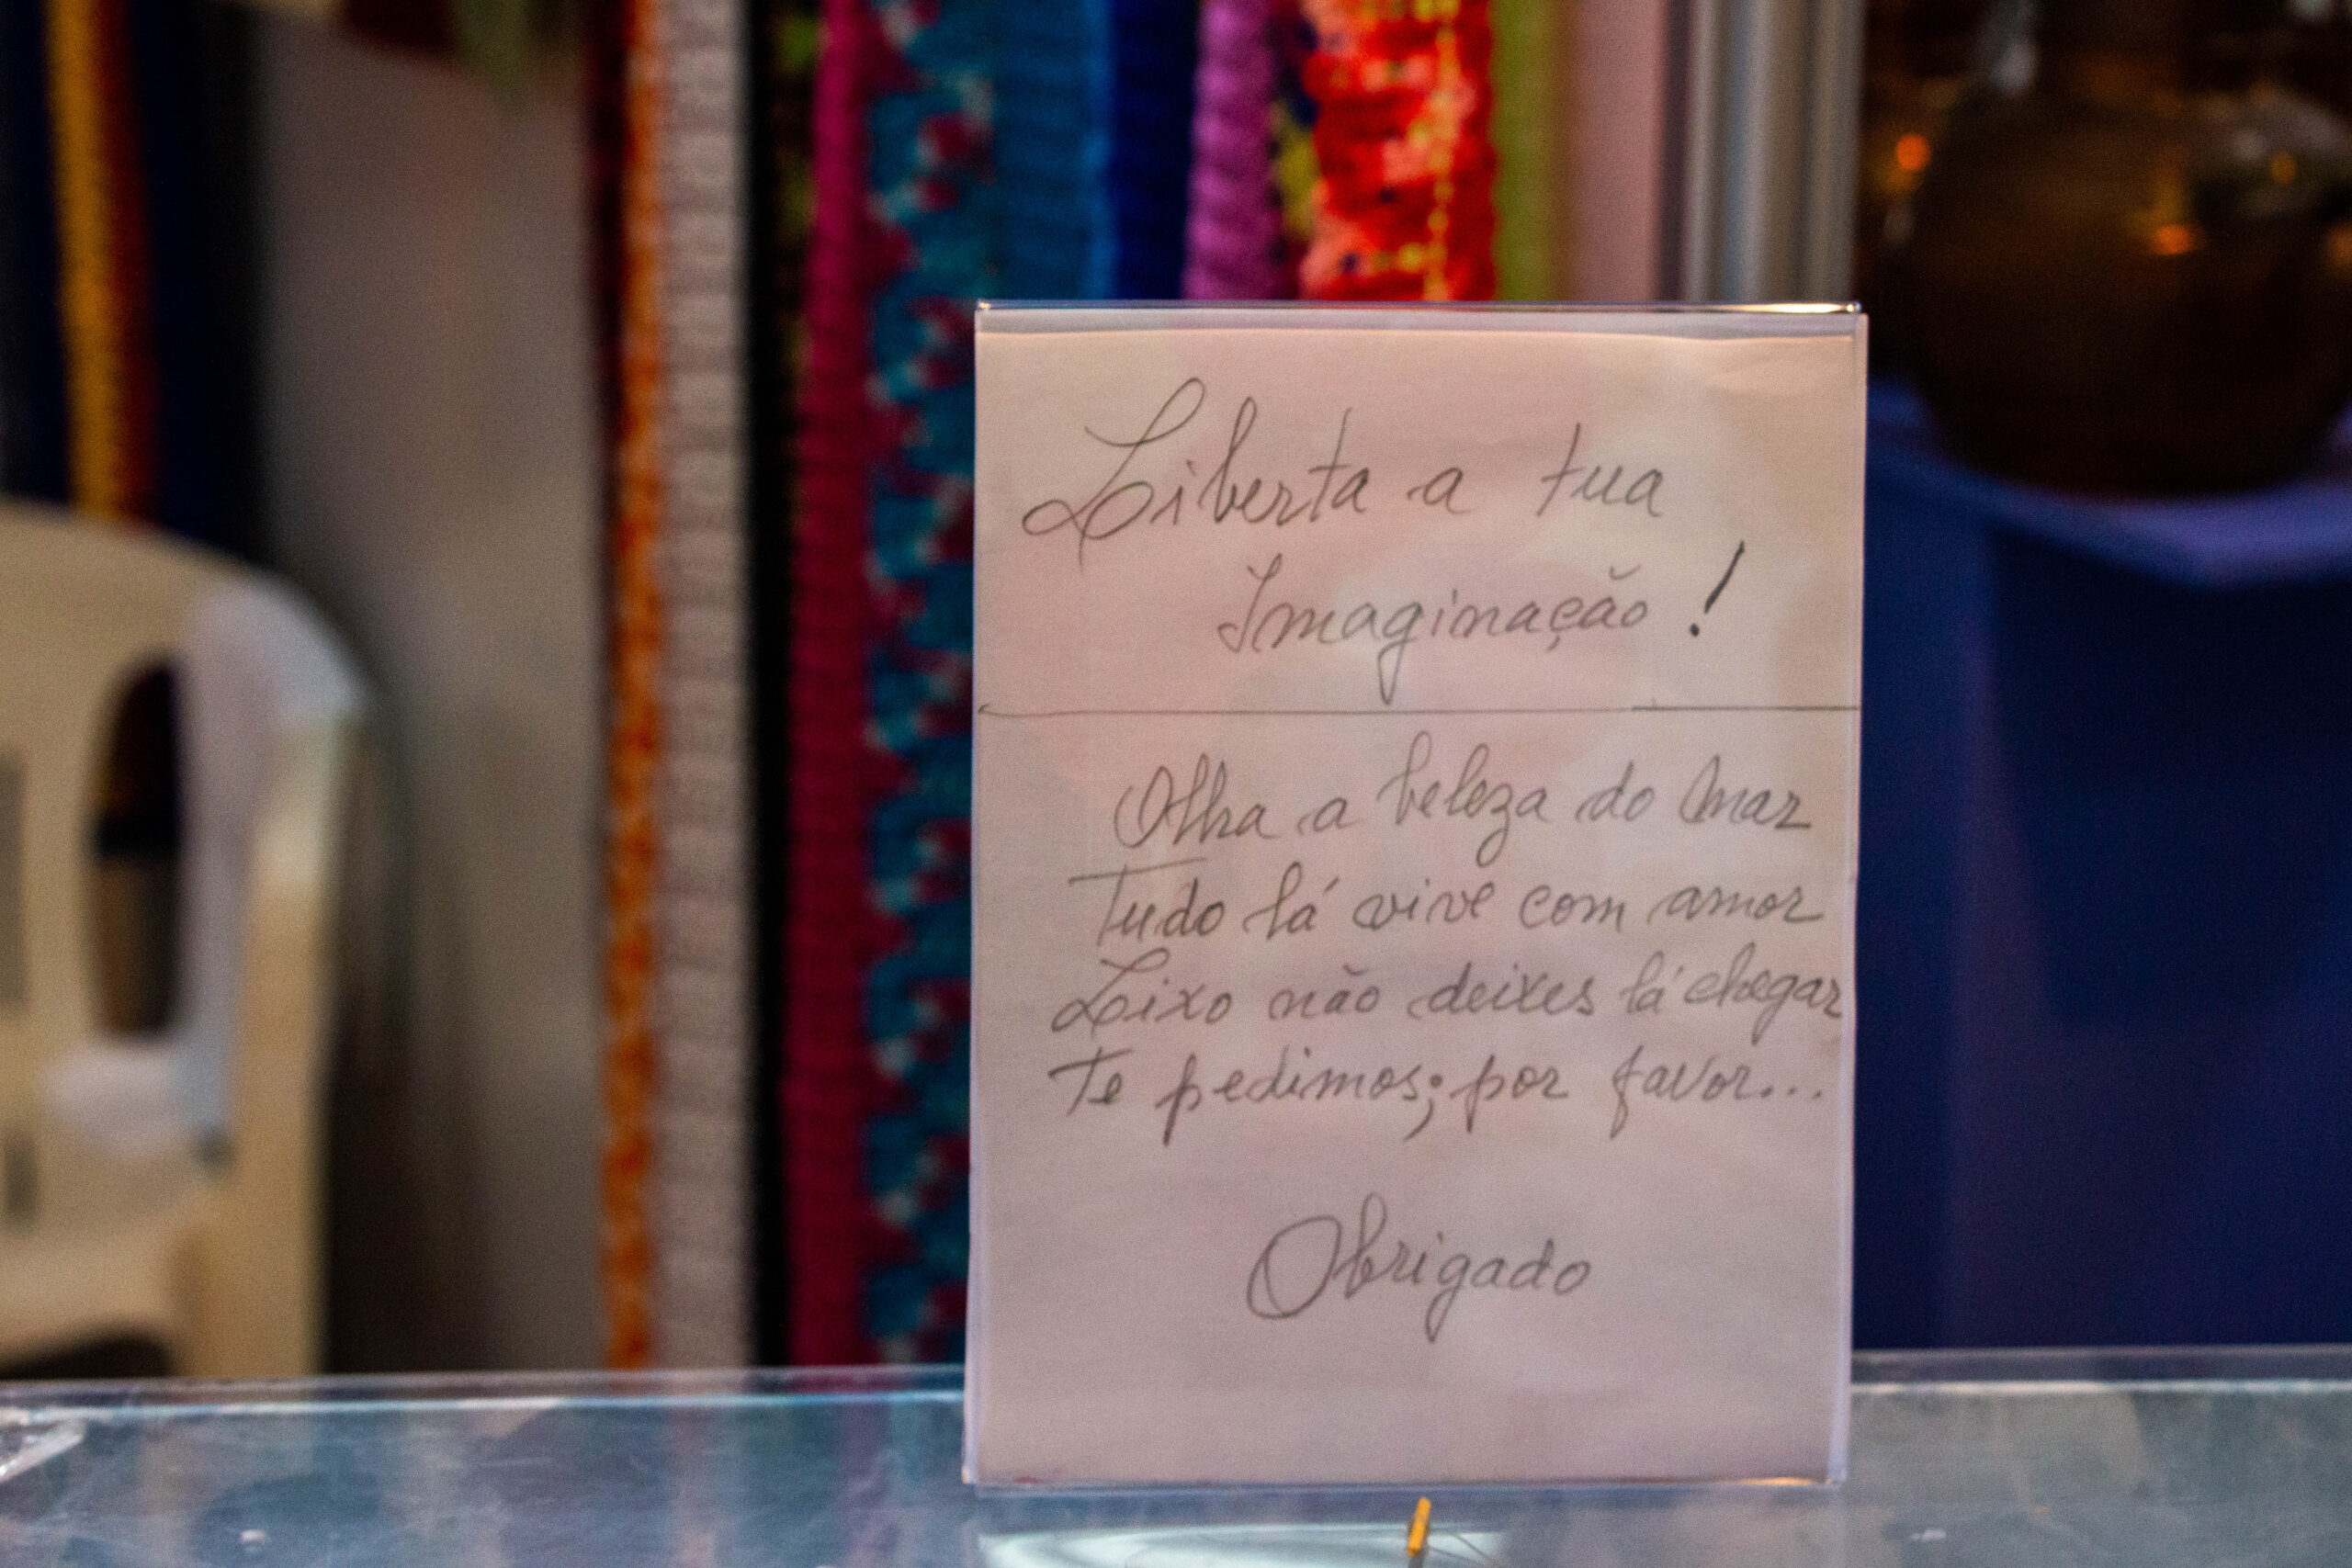 Liberta a tua
Imaginação!
Olha a beleza do mar
Tudo lá vive com amor
Lixo não deixes lá chegar
Te pedimos; por favor...
Obrigado